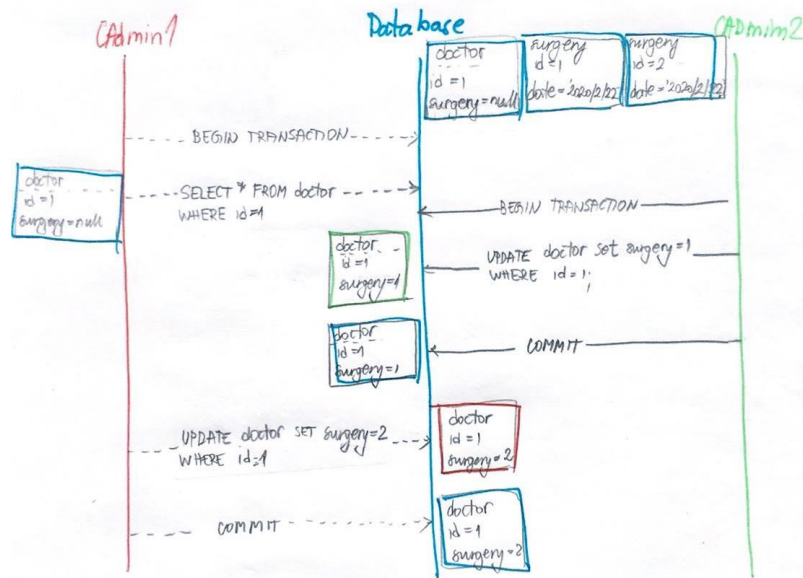 CAdmin1
Database
CAdmin2
doctor
id=1
surgery=null
surgery
id=1
date='2020/2/22'
surgery
id=2
date='2020/2/22'
BEGIN TRANSACTION
doctor
id=1
surgery=null
SELECT * FROM doctor
WHERE id=1
BEGIN TRANSACTION
doctor
id=1
surgery=1
UPDATE doctor set surgery=1
WHERE id=1;
doctor
id=1
surgery=1
COMMIT
UPDATE doctor SET surgery=2
WHERE id=1
doctor
id=1
surgery=2
COMMIT
doctor
id=1
surgery=2